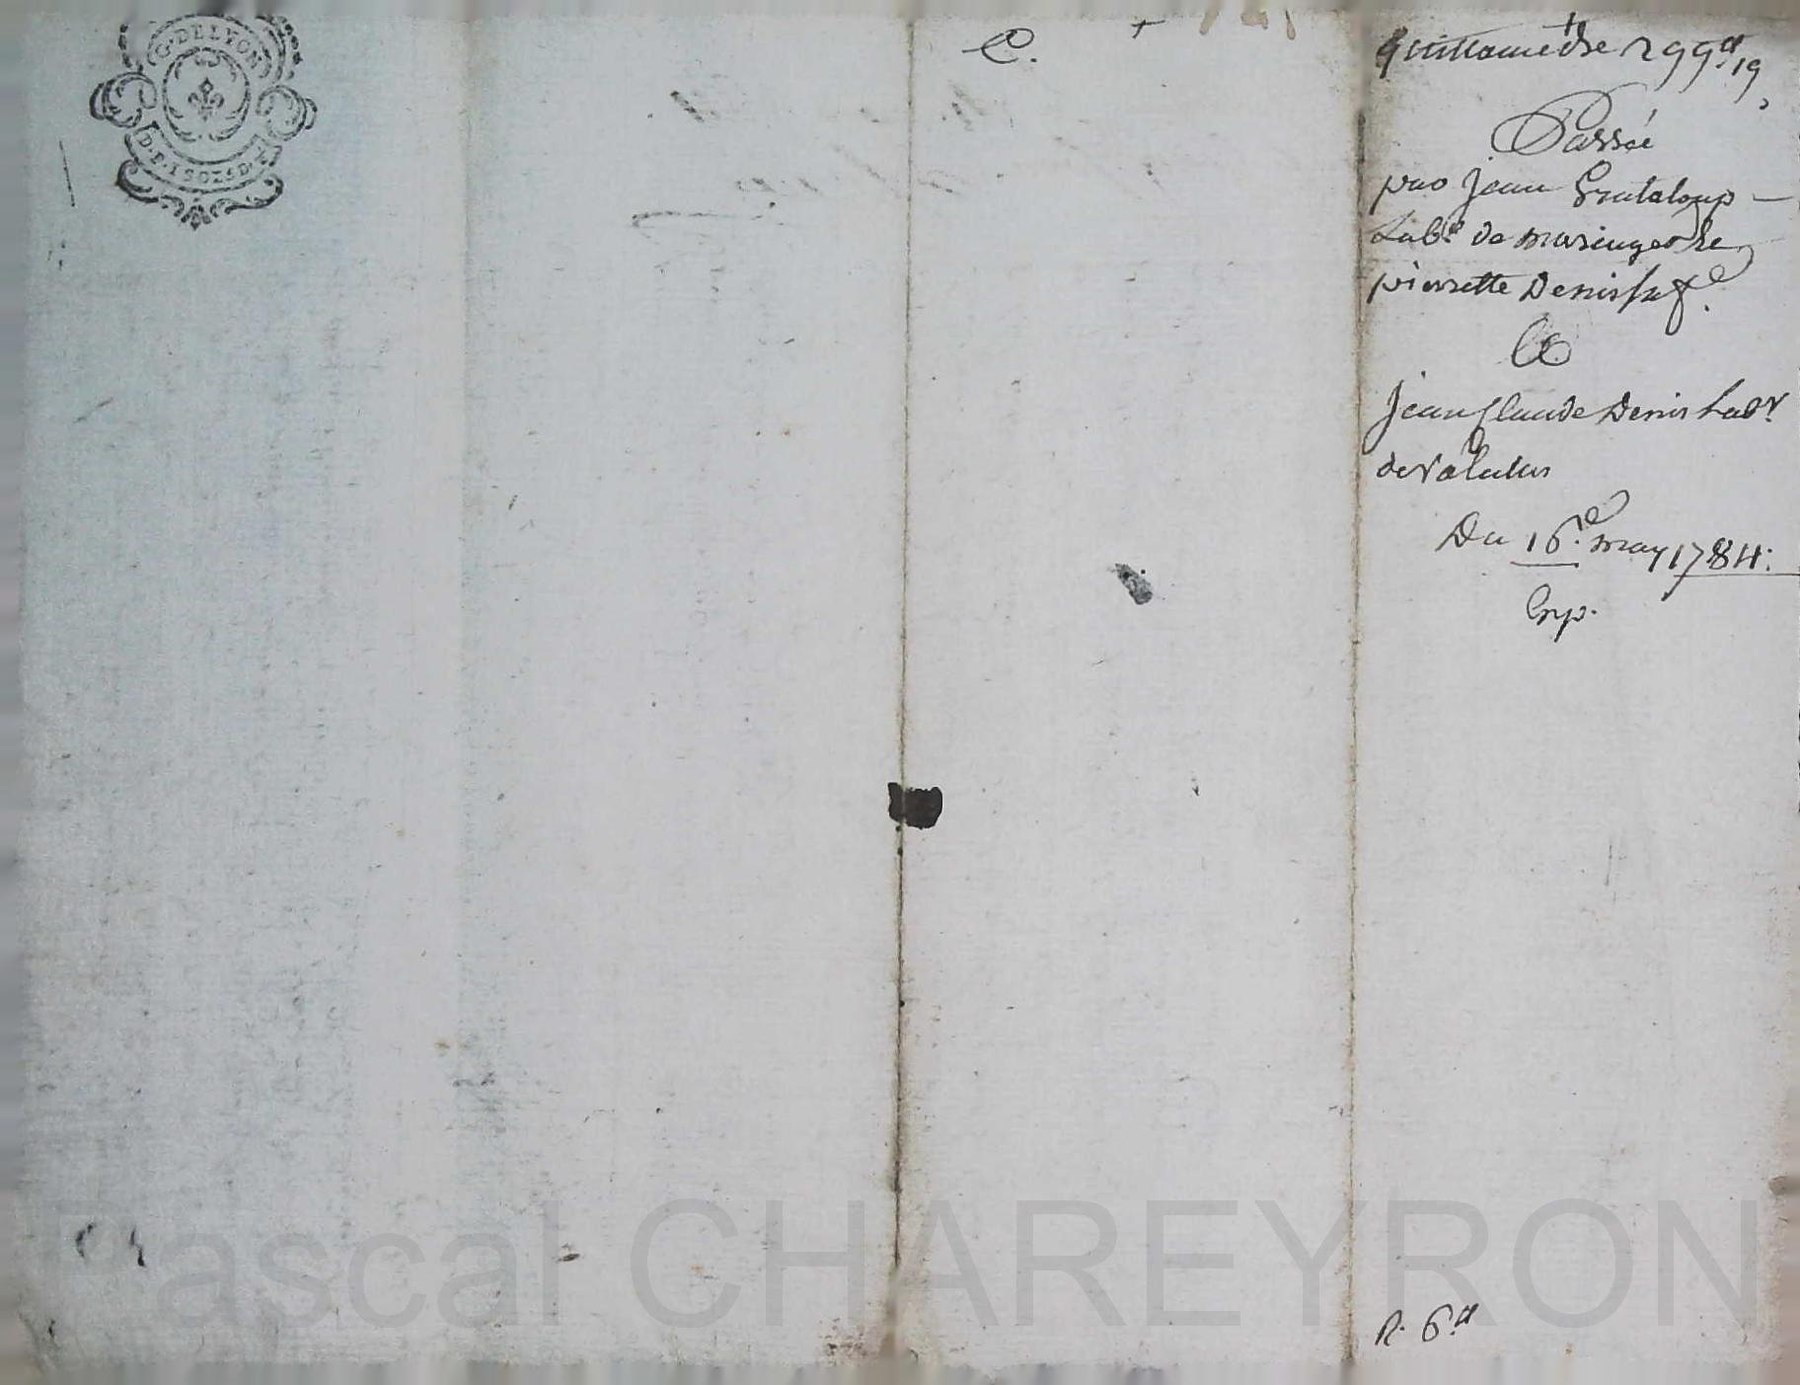 G. DE LYON
D.P. 1 SOL 8 D.
C.
quittance de 299# 19
Passée
par Jean Grataloup
Labr. de maringes &
pierrette Denis sa fe.
A
jean Claude Denis Labr.
de
Du 16e. may 1784.
Exp.
R. 6#
Pascal CHAREYRON